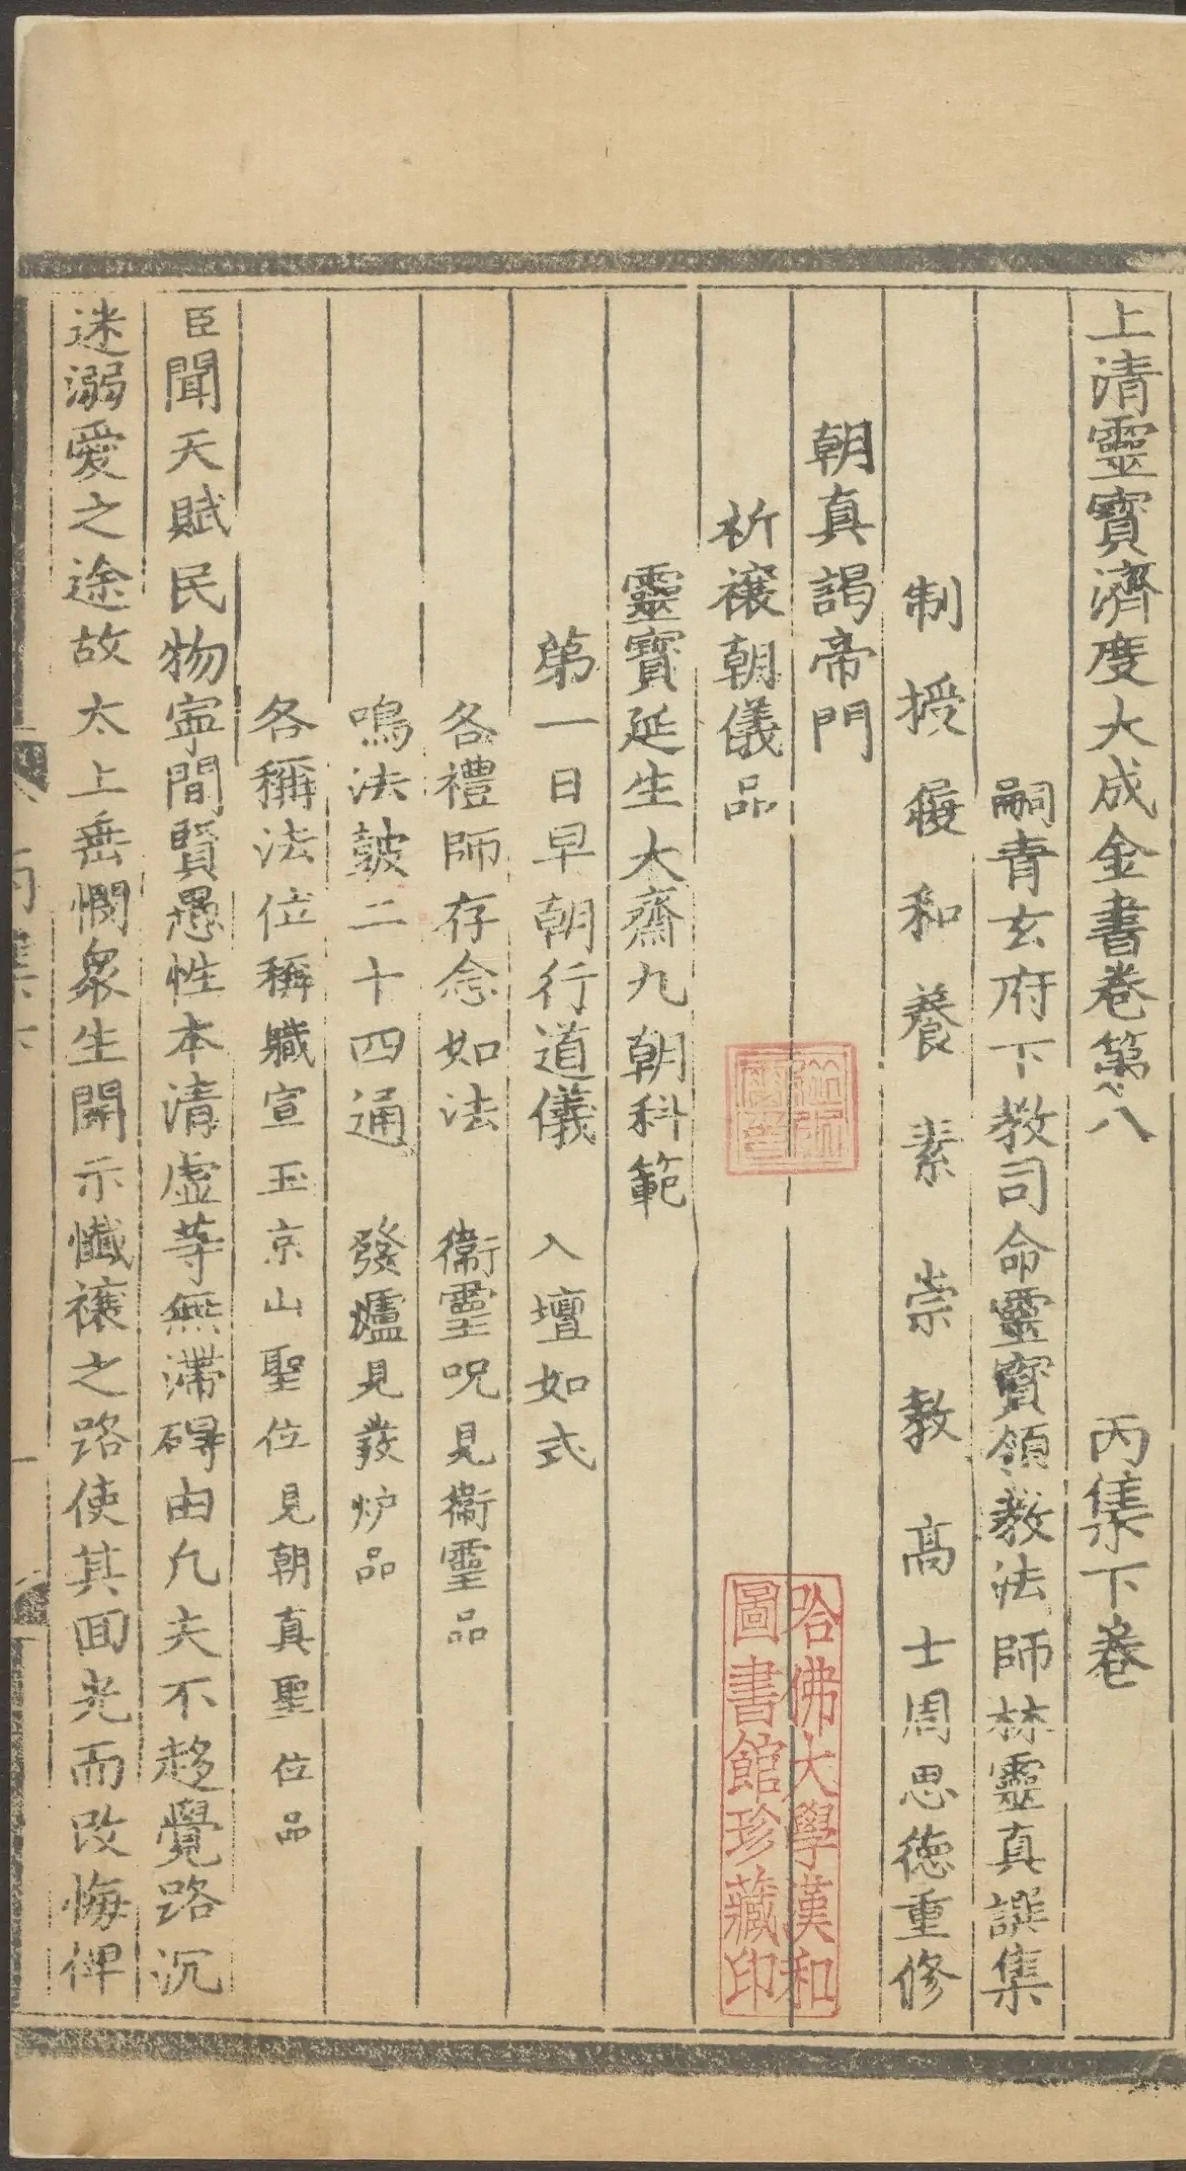 上清靈寶濟度大成金書卷第八 丙集下卷
嗣青玄府下教司命靈寶領教法師林靈真譔集
制授履和養素崇教高士周思德重修
朝真謁帝門
祈禳朝儀品
靈寶延生大齋九朝科範
第一日早朝行道儀 入壇如式
各禮師存念如法 衛靈呪見衛靈品
鳴法鼓二十四通 發爐見發炉品
各稱法位稱職宣玉京山聖位見朝真聖位品
臣聞天賦民物寧間賢愚性本清虛等無滯礙由凢夫不趍覺路沉
迷溺愛之途故太上垂憫眾生開示懺禳之路使其回光而改悔俾
哈佛大學漢和
圖書館珍藏印